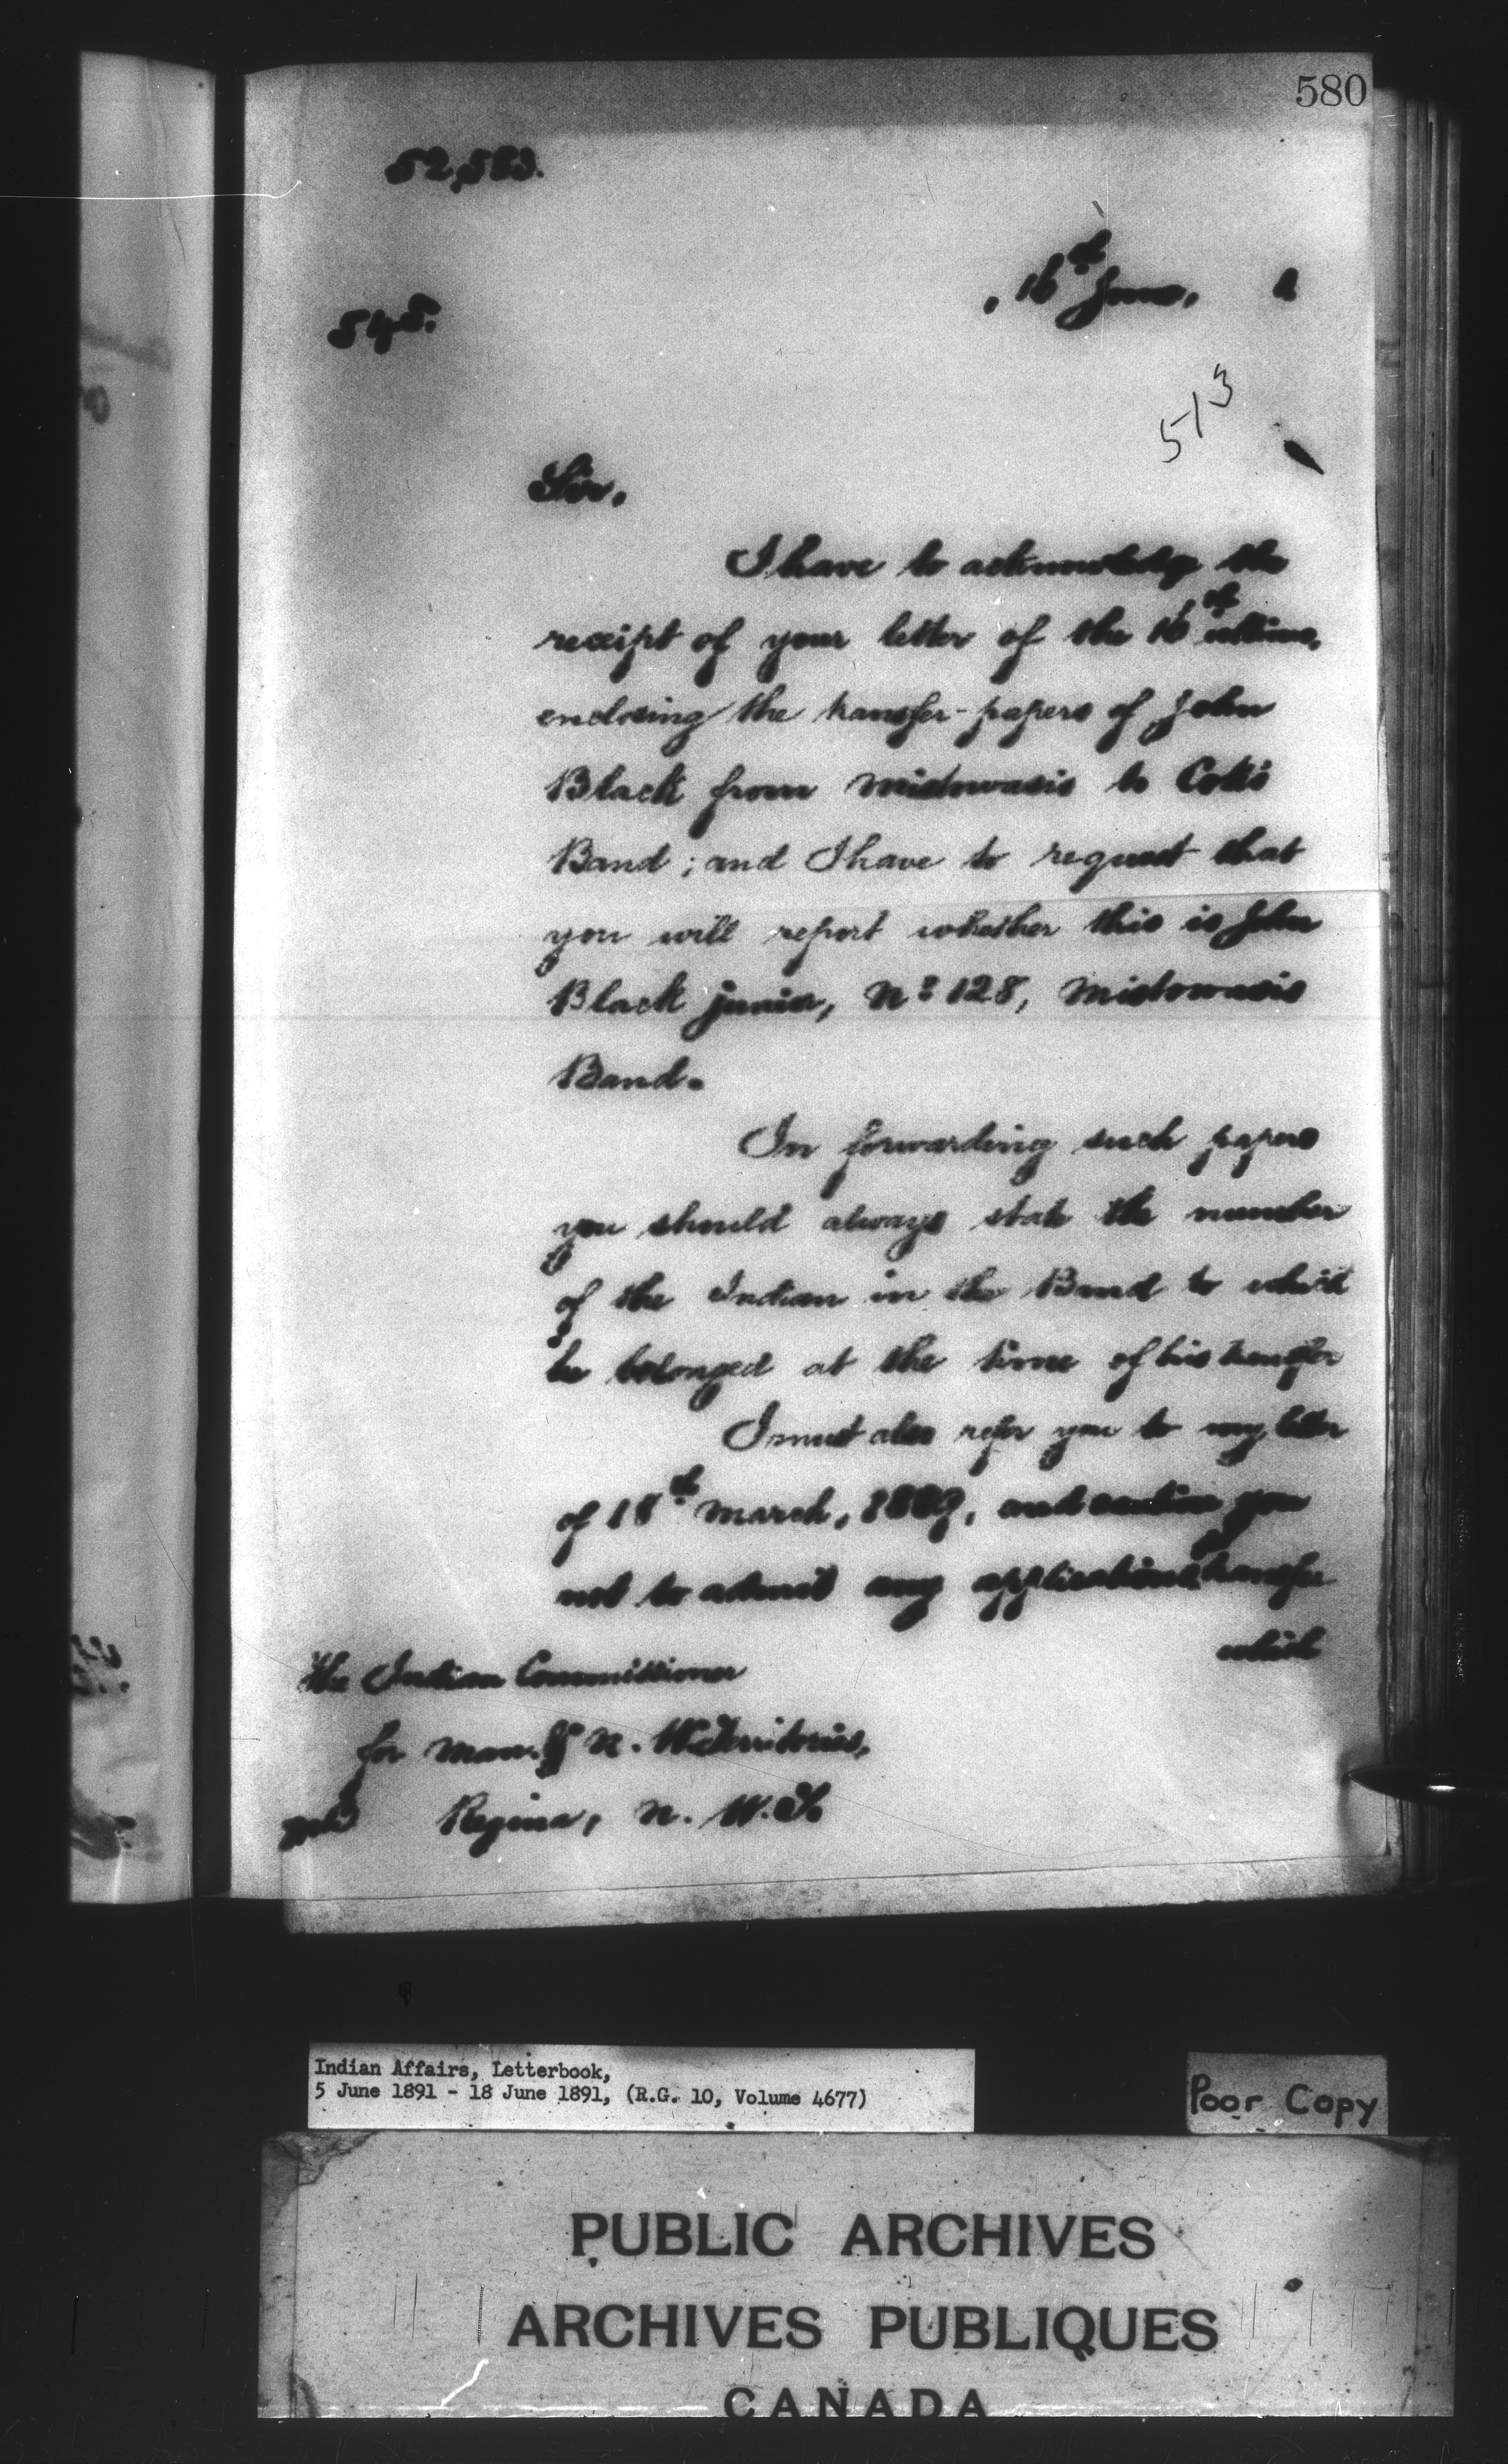 580
52,583.
, 16th June, 1
545.
513
Sir,
I have to acknowledge the
receipt of your letter of the 16th ultimo,
enclosing the transfer-papers of John
Black from Mistowasis to Cote's
Band; and I have to request that
you will report whether this is John
Black junior, No 128, Mistowasis
Band.
In forwarding such papers
you should always state the number
of the Indian in the Band to which
he belonged at the time of his transfer
I must also refer you to my letter
of 18th March, 1889, and caution you
not to admit any applications transfer
which
The Indian Commissioner
for Man. & N. W. Territories,
Regina, N. W. T.
Indian Affairs, Letterbook,
5 June 1891 - 18 June 1891, (R.G. 10, Volume 4677)
Poor Copy
PUBLIC ARCHIVES
ARCHIVES PUBLIQUES
CANADA